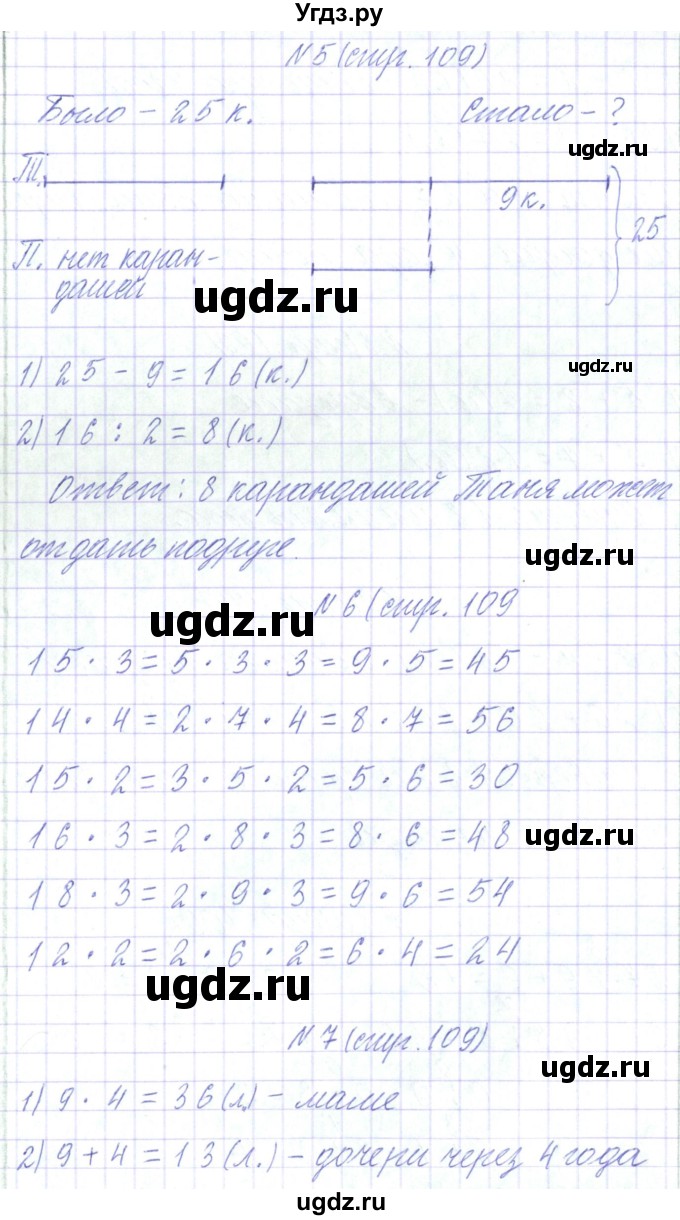 Угдз.ру
N5 (стр. 109)
Было - 25 к. Стало - ?
ugdz.ru
Т.
9 к.
25
П. нет каран-
дашей
ugdz.ru
ugdz.ru
1) 25 - 9 = 16 (к.)
2) 16 : 2 = 8 (к.)
Ответ: 8 карандашей Таня может
отдать подруге.
ugdz.ru
ugdz.ru
N6 (стр. 109
15 · 3 = 5 · 3 · 3 = 9 · 5 = 45
14 · 4 = 2 · 7 · 4 = 8 · 7 = 56
15 · 2 = 3 · 5 · 2 = 5 · 6 = 30
16 · 3 = 2 · 8 · 3 = 8 · 6 = 48
ugdz.ru
18 · 3 = 2 · 9 · 3 = 9 · 6 = 54
12 · 2 = 2 · 6 · 2 = 6 · 4 = 24
ugdz.ru
N7 (стр. 109)
ugdz.ru
1) 9 · 4 = 36 (л.) - маме
2) 9 + 4 = 13 (л.) - дочери через 4 года
ugdz.ru